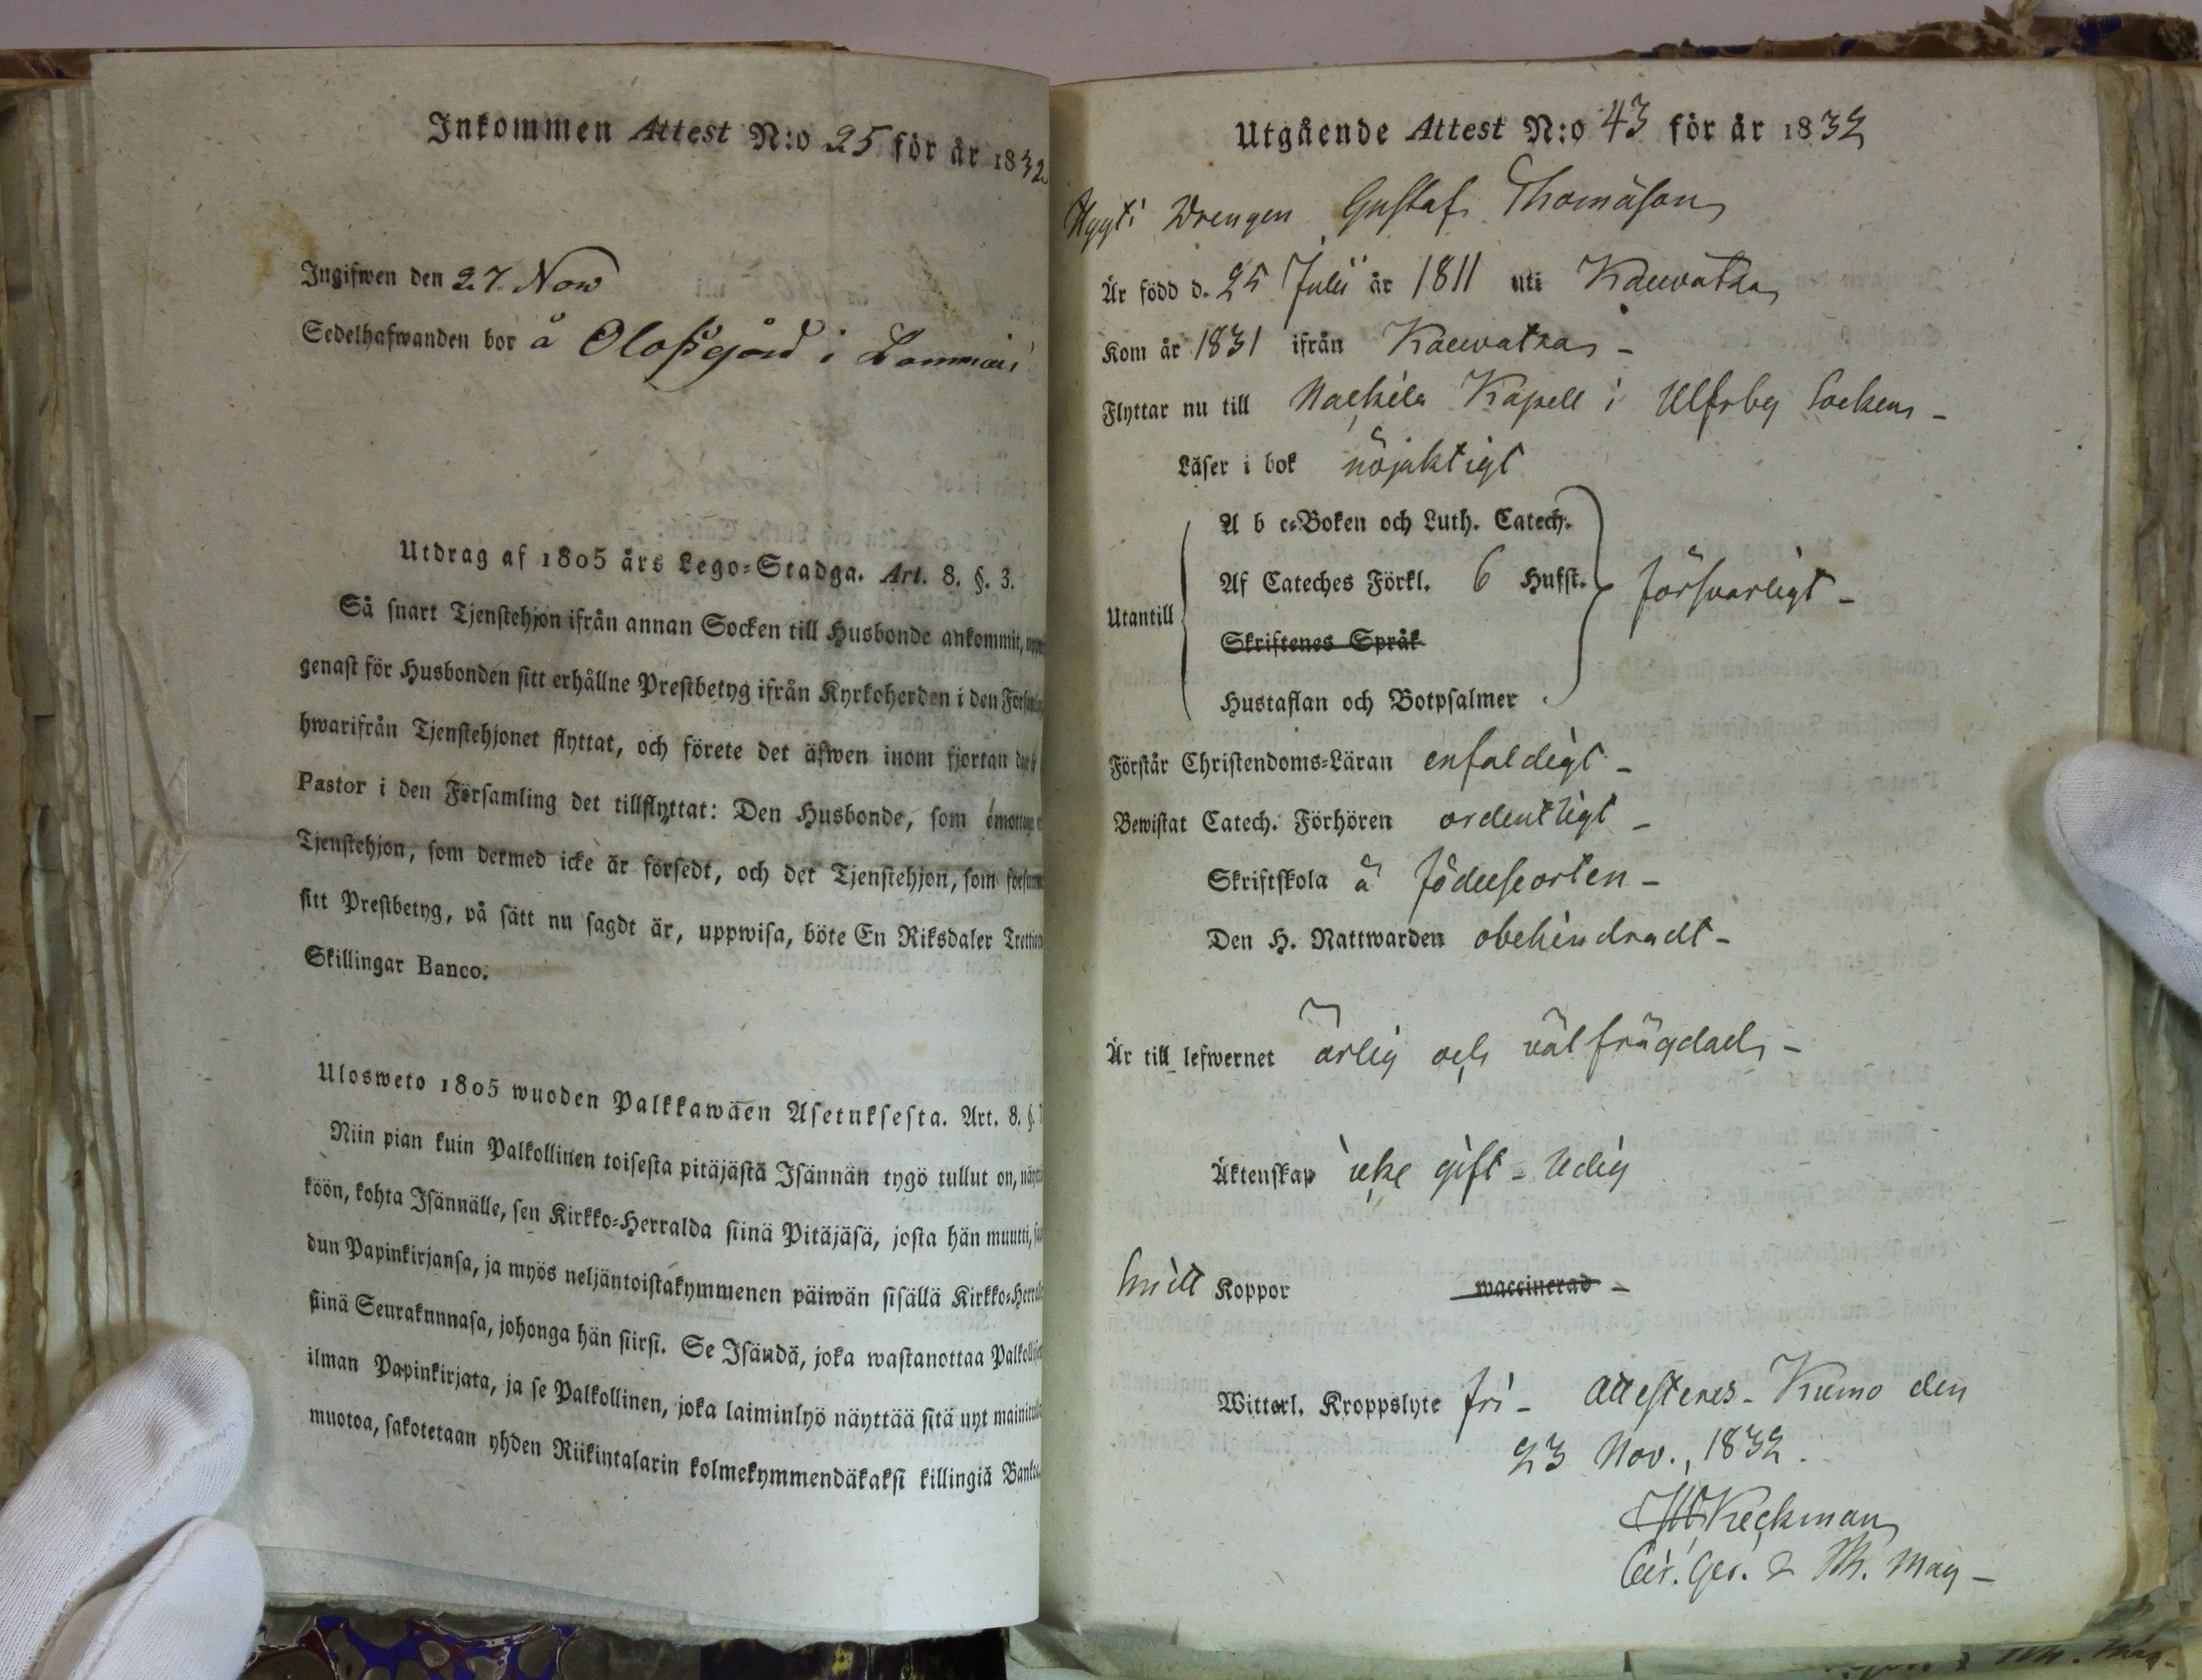 Inkommen Attest N:o 25 för år 1832
Ingifwen den 27 Nov
Sedelhafwanden bor å Olofsgård i Lammais
Utdrag af 1805 års Lego-Stadga. Art. 8. §. 3.
Så snart Tjenstehjon ifrån annan Socken till Husbonde ankommit,
genast för Husbonden sitt erhållne Prestbetyg ifrån Kyrkoherden i den
hwarifrån Tjenstehjonet flyttat, och förete det äfwen inom fjortan
Pastor i den Församling det tillflyttat: Den Husbonde, som
Tjenstehjon, som dermed icke är försedt, och det Tjenstehjon, som
sitt Prestbetyg, på sätt nu sagdt är, uppwisa, böte En Riksdaler
Skillingar Banco.
Ulosweto 1805 wuoden Palkkawäen Asetuksesta. Art. 8. §.
Niin pian kuin Palkollinen toisesta pitäjästä Isännän tygö tullut on,
köön, kohta Isännälle, sen Kirkko-Herralda siinä Pitäjäsä, josta hän muutti,
dun Papinkirjansa, ja myös neljäntoistakymmenen päiwän sisällä
siinä Seurakunnasa, johonga hän siirsi. Se Isändä, joka wastanottaa
ilman Papinkirjata, ja se Palkollinen, joka laiminlyö näyttää sitä nyt
muotoa, sakotetaan yhden Riikintalarin kolmekymmendäkaksi killingiä
Utgående Attest N:o 43 för år 1832
Drengen Gustaf Thomasson
Är född d. 25 Julii år 1811 uti Kaewatka
Kom år 1831 ifrån Kaewatka -
Flyttar nu till Nackila Kapell i Ulfsby Socken -
Läser i bok nöjaktigt
A b c-Boken och Luth. Catech.
Af Cateches Förkl. 6 Hufst. försvarligt -
Utantill
Skriftenes Språk
Hustaflan och Botpsalmer
Förstår Christendoms-Läran enfaldigt -
Bewistat Catech. Förhören ordentligt -
Skriftskola å födelseorten -
Den H. Nattwarden obehindradt -
Är till lefwernet ärlig och välfrägdad -
Äktenskap icke gift - ledig
haft Koppor waccinerad -
Witterl. Kroppslyte fri - Attesteres - Kumo den
23 Nov., 1832.
Keckman